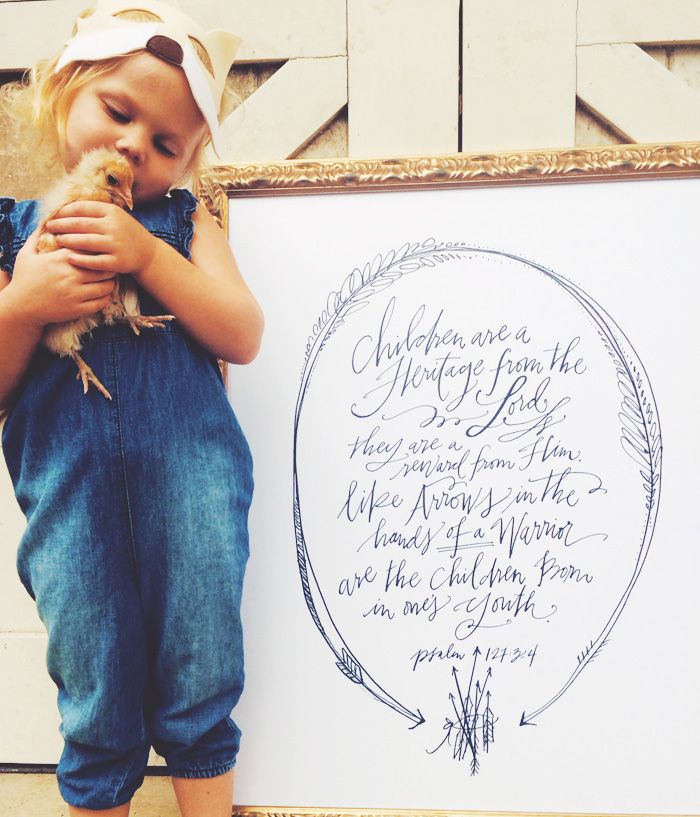 Children are a
Heritage from the
Lord,
they are a
reward from Him.
like Arrows in the
hands of a Warrior
are the Children Born
in one's youth.
psalm 127:3-4